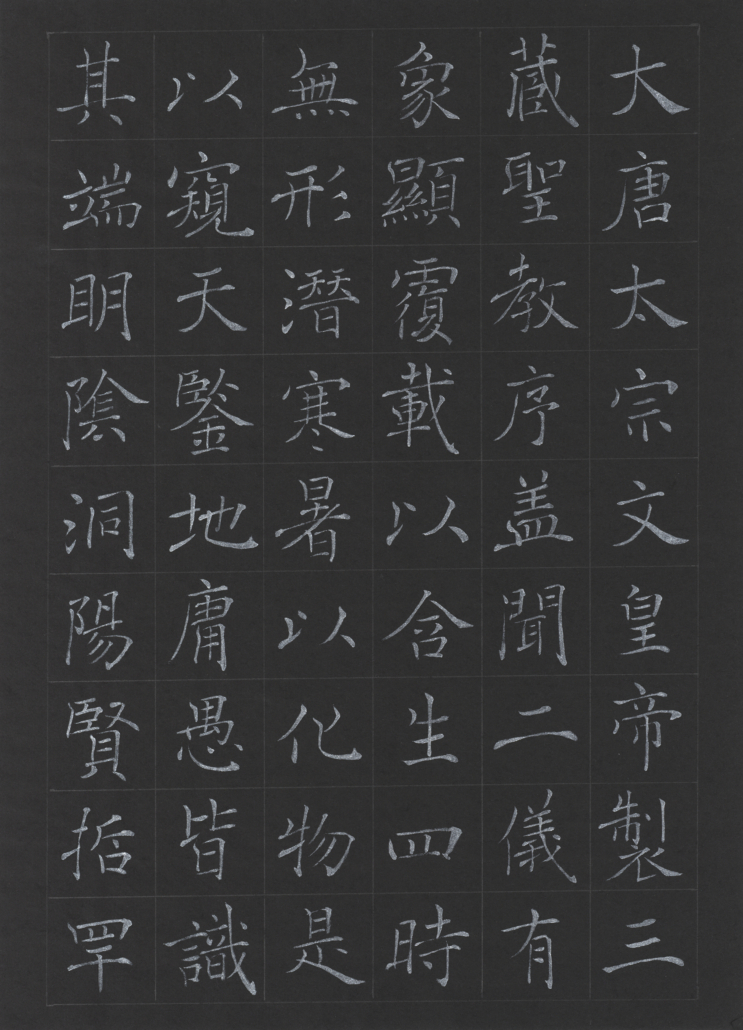 大唐太宗文皇帝製三
藏聖教序盖聞二儀有
象顯覆載以含生四時
無形潛寒暑以化物是
以窺天鑒地庸愚皆識
其端明陰洞陽賢哲罕